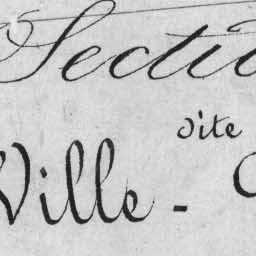 Secti
dite
Ville -